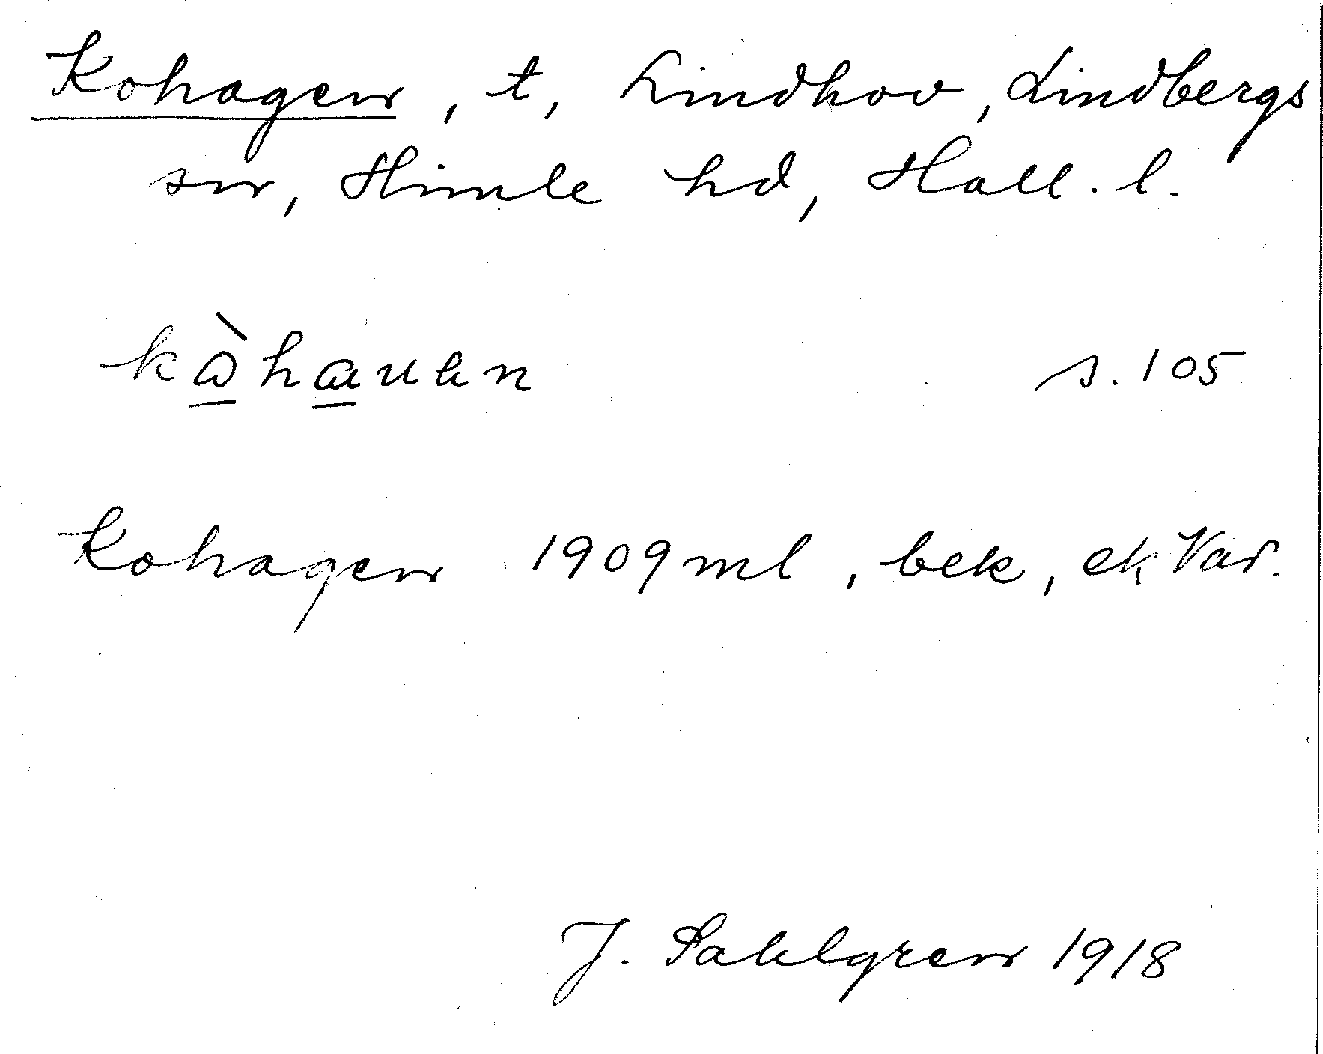 Kohagen, t, Lindhov, Lindbergs
sn, Himle hd, Hall. l.
kàhauen s. 105
Kohagen 1909 ml, bek, ek Var.
J. Sahlgren 1918